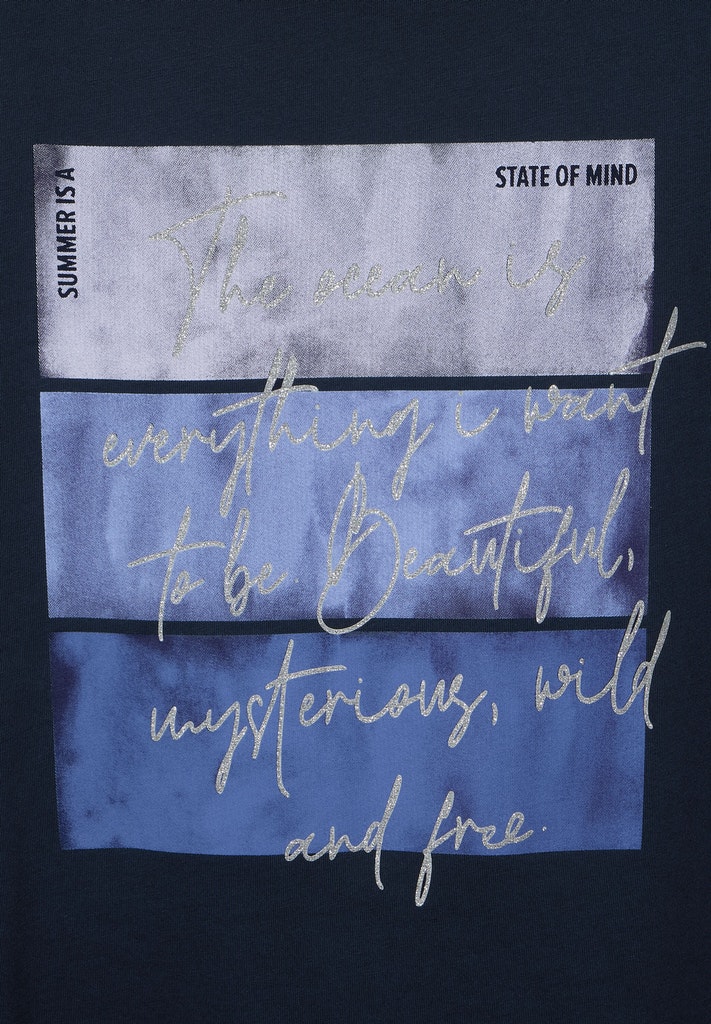 SUMMER IS A
STATE OF MIND
The ocean is
everything i want
to be. Beautiful,
mysterious, wild
and free.